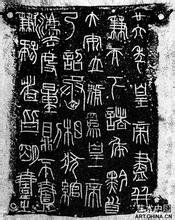 廿六年皇帝盡并
兼天下諸侯黔首
大安立號爲皇帝
乃詔丞相狀綰
灋度量則不壹
歉疑者皆明壹之
艺术中国
ART.CHINA.CN